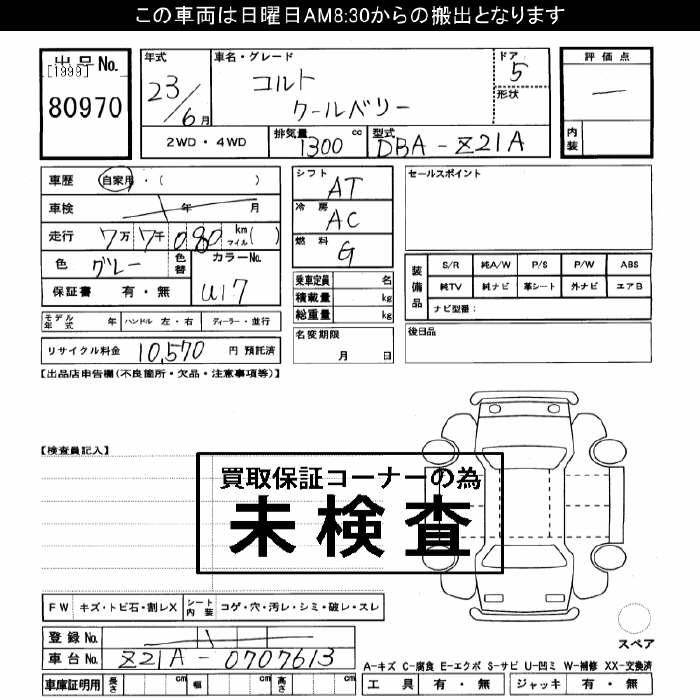 この車両は日曜日AM8:30からの搬出となります
出品No.
[1999]
80970
年式
23/6月
車名・グレード
コルト
クールベリー
ドア
5
形状
評価点
―
内装
2WD・4WD
排気量
1300cc
型式
DBA-Z21A
車歴 自家用・( )
車検 年 月
走行 7万7千080 km マイル( )
色 グレー 色替 カラーNo.
U17
保証書 有・無
シフト AT
冷房 AC
燃料 G
乗車定員 名
積載量 kg
総重量 kg
セールスポイント
装備品
S/R 純A/W P/S P/W ABS
純TV 純ナビ 革シート 外ナビ エアB
ナビ型番:
モデル年式 年 ハンドル 左・右 ディーラー・並行
名変期限
月 日
後日品
リサイクル料金 10,570 円 預託済
【出品店申告欄(不良箇所・欠品・注意事項等)】
【検査員記入】
買取保証コーナーの為
未検査
FW キズ・トビ石・割レX シート内装 コゲ・穴・汚レ・シミ・破レ・スレ
スペア
登録No.
車台No. Z21A-0707613
A-キズ C-腐食 E-エクボ S-サビ U-凹ミ W-補修 XX-交換済
車庫証明用 長さ cm 幅 cm 高さ cm
工具 有・無 ジャッキ 有・無